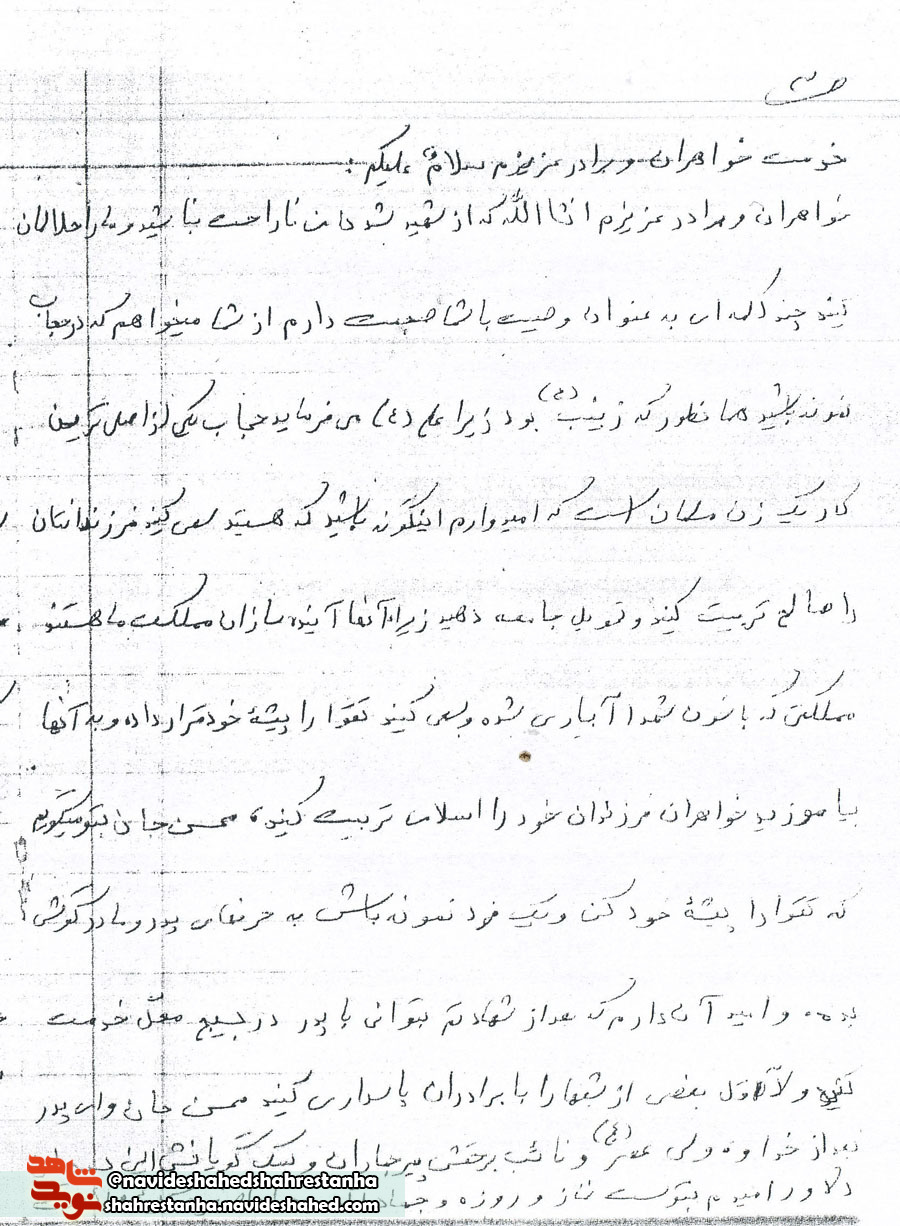 ص ۳
خدمت خواهران و برادر عزیزم سلامٌ علیکم:
خواهران و برادر عزیزم انشاالله که از شهید شدن من ناراحت نباشید و مرا حلالمان
کنید چند کلمه ای به عنوان وصیت با شما صحبت دارم از شما میخواهم که در حجاب
نمونه باشید همانطور که زینب (س) بود زیرا علی (ع) می فرماید حجاب یکی از اصلی ترین
کار یک زن مسلمان است که امیدوارم اینگونه باشید که هستید سعی کنید فرزندانتان
را صالح تربیت کنید و تحویل جامعه دهید زیرا آنها آینده سازان مملکت ما هستند
مملکتی که با خون شهدا آبیاری شده و سعی کنید تقوا را پیشهٔ خود قرار داده و به آنها
بیاموزید خواهران فرزندان خود را اسلامی تربیت کنید، محسن جان بتو میگویم
که تقوا را پیشهٔ خود کن و یک فرد نمونه باش به حرفهای پدر و مادر گوش
بده و امید آن دارم که بعد از شهادتم بتوانی با پدر در بسیج محل خدمت
کنید و لااقل بعضی از شبها را با برادران پاسداری کنید محسن جان و ای پدر
بعد از خدا و ولی عصر (عج) و نائب برحقش پیر جماران و لبیک گویانش
دلاور امیدم بتوست نماز و روزه و
شاهد
نوید
@navideshahedshahrestanha
shahrestanha.navideshahed.com